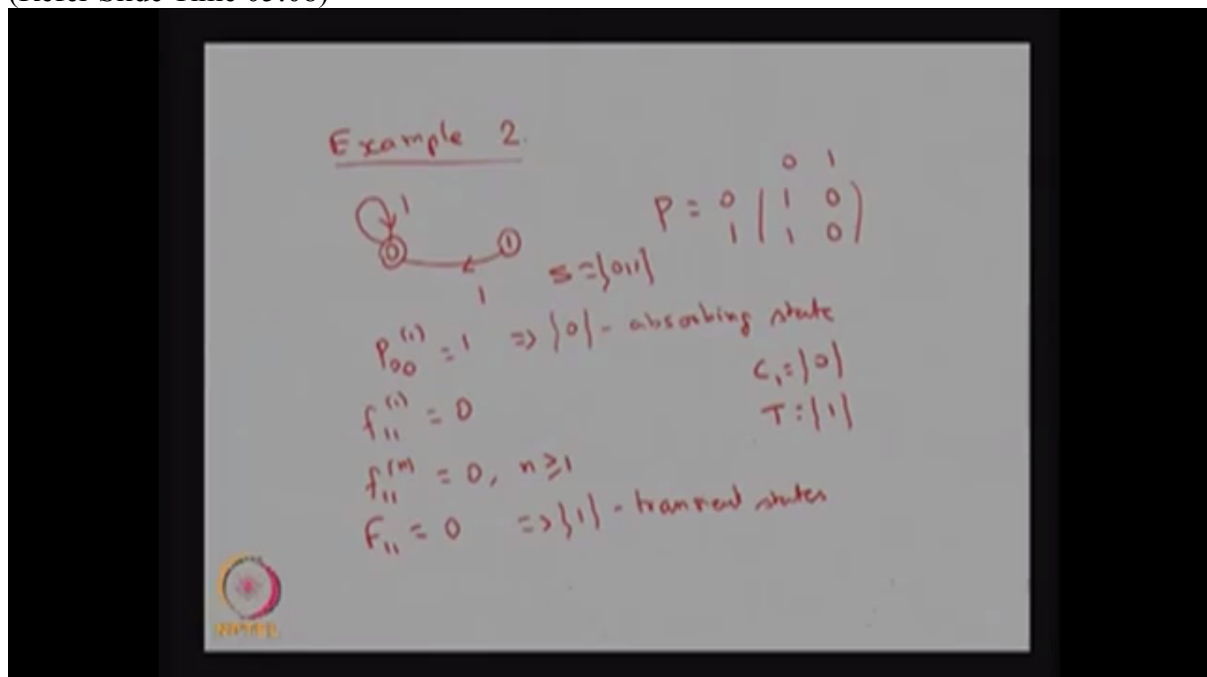 (Refer Slide Time 05:08)
Example 2.
0 1
P = 0 ( 1 0 )
1 ( 1 0 )
1
0 1
1
S = {0,1}
P₀₀⁽¹⁾ = 1 => {0} - absorbing state
C₁ = {0}
f₁₁⁽¹⁾ = 0
T = {1}
f₁₁⁽ⁿ⁾ = 0, n ≥ 1
F₁₁ = 0 => {1} - transient states
NPTEL